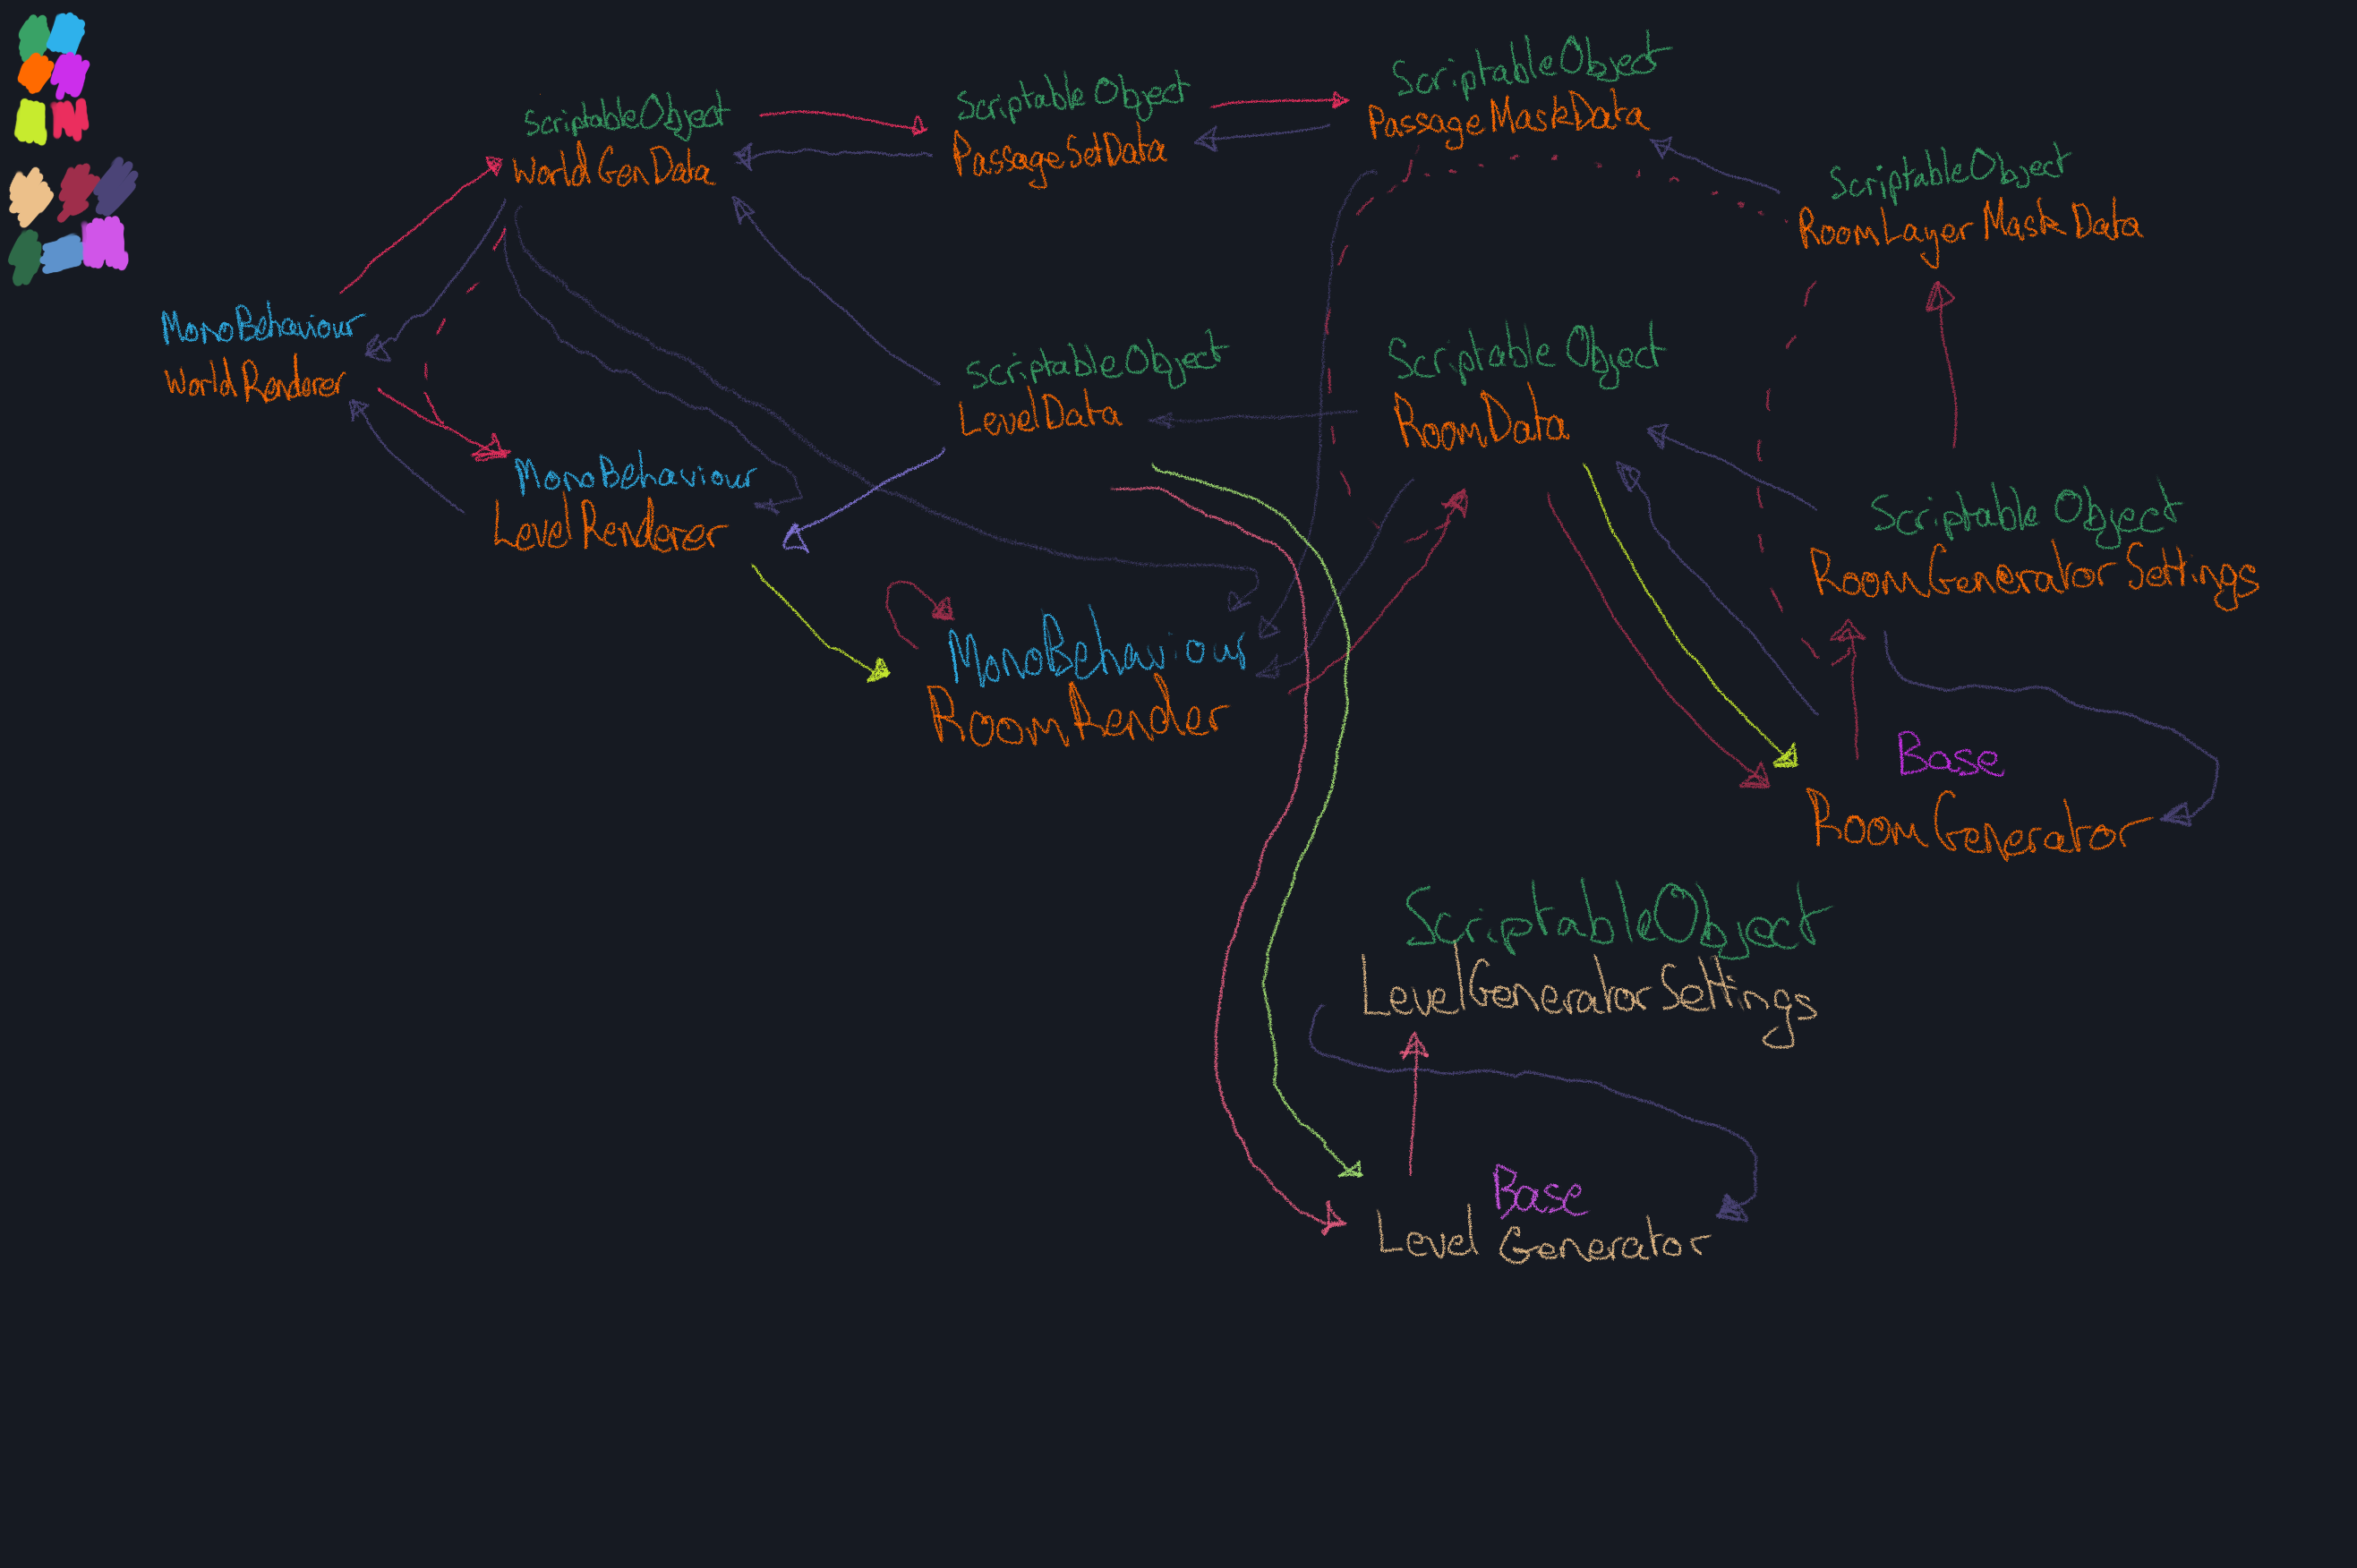 ScriptableObject
WorldGenData
Scriptable Object
PassageSetData
ScriptableObject
PassageMaskData
ScriptableObject
RoomLayerMaskData
MonoBehaviour
WorldRenderer
MonoBehaviour
LevelRenderer
ScriptableObject
LevelData
Scriptable Object
RoomData
Scriptable Object
RoomGeneratorSettings
MonoBehaviour
RoomRender
Base
RoomGenerator
ScriptableObject
LevelGeneratorSettings
Base
Level Generator